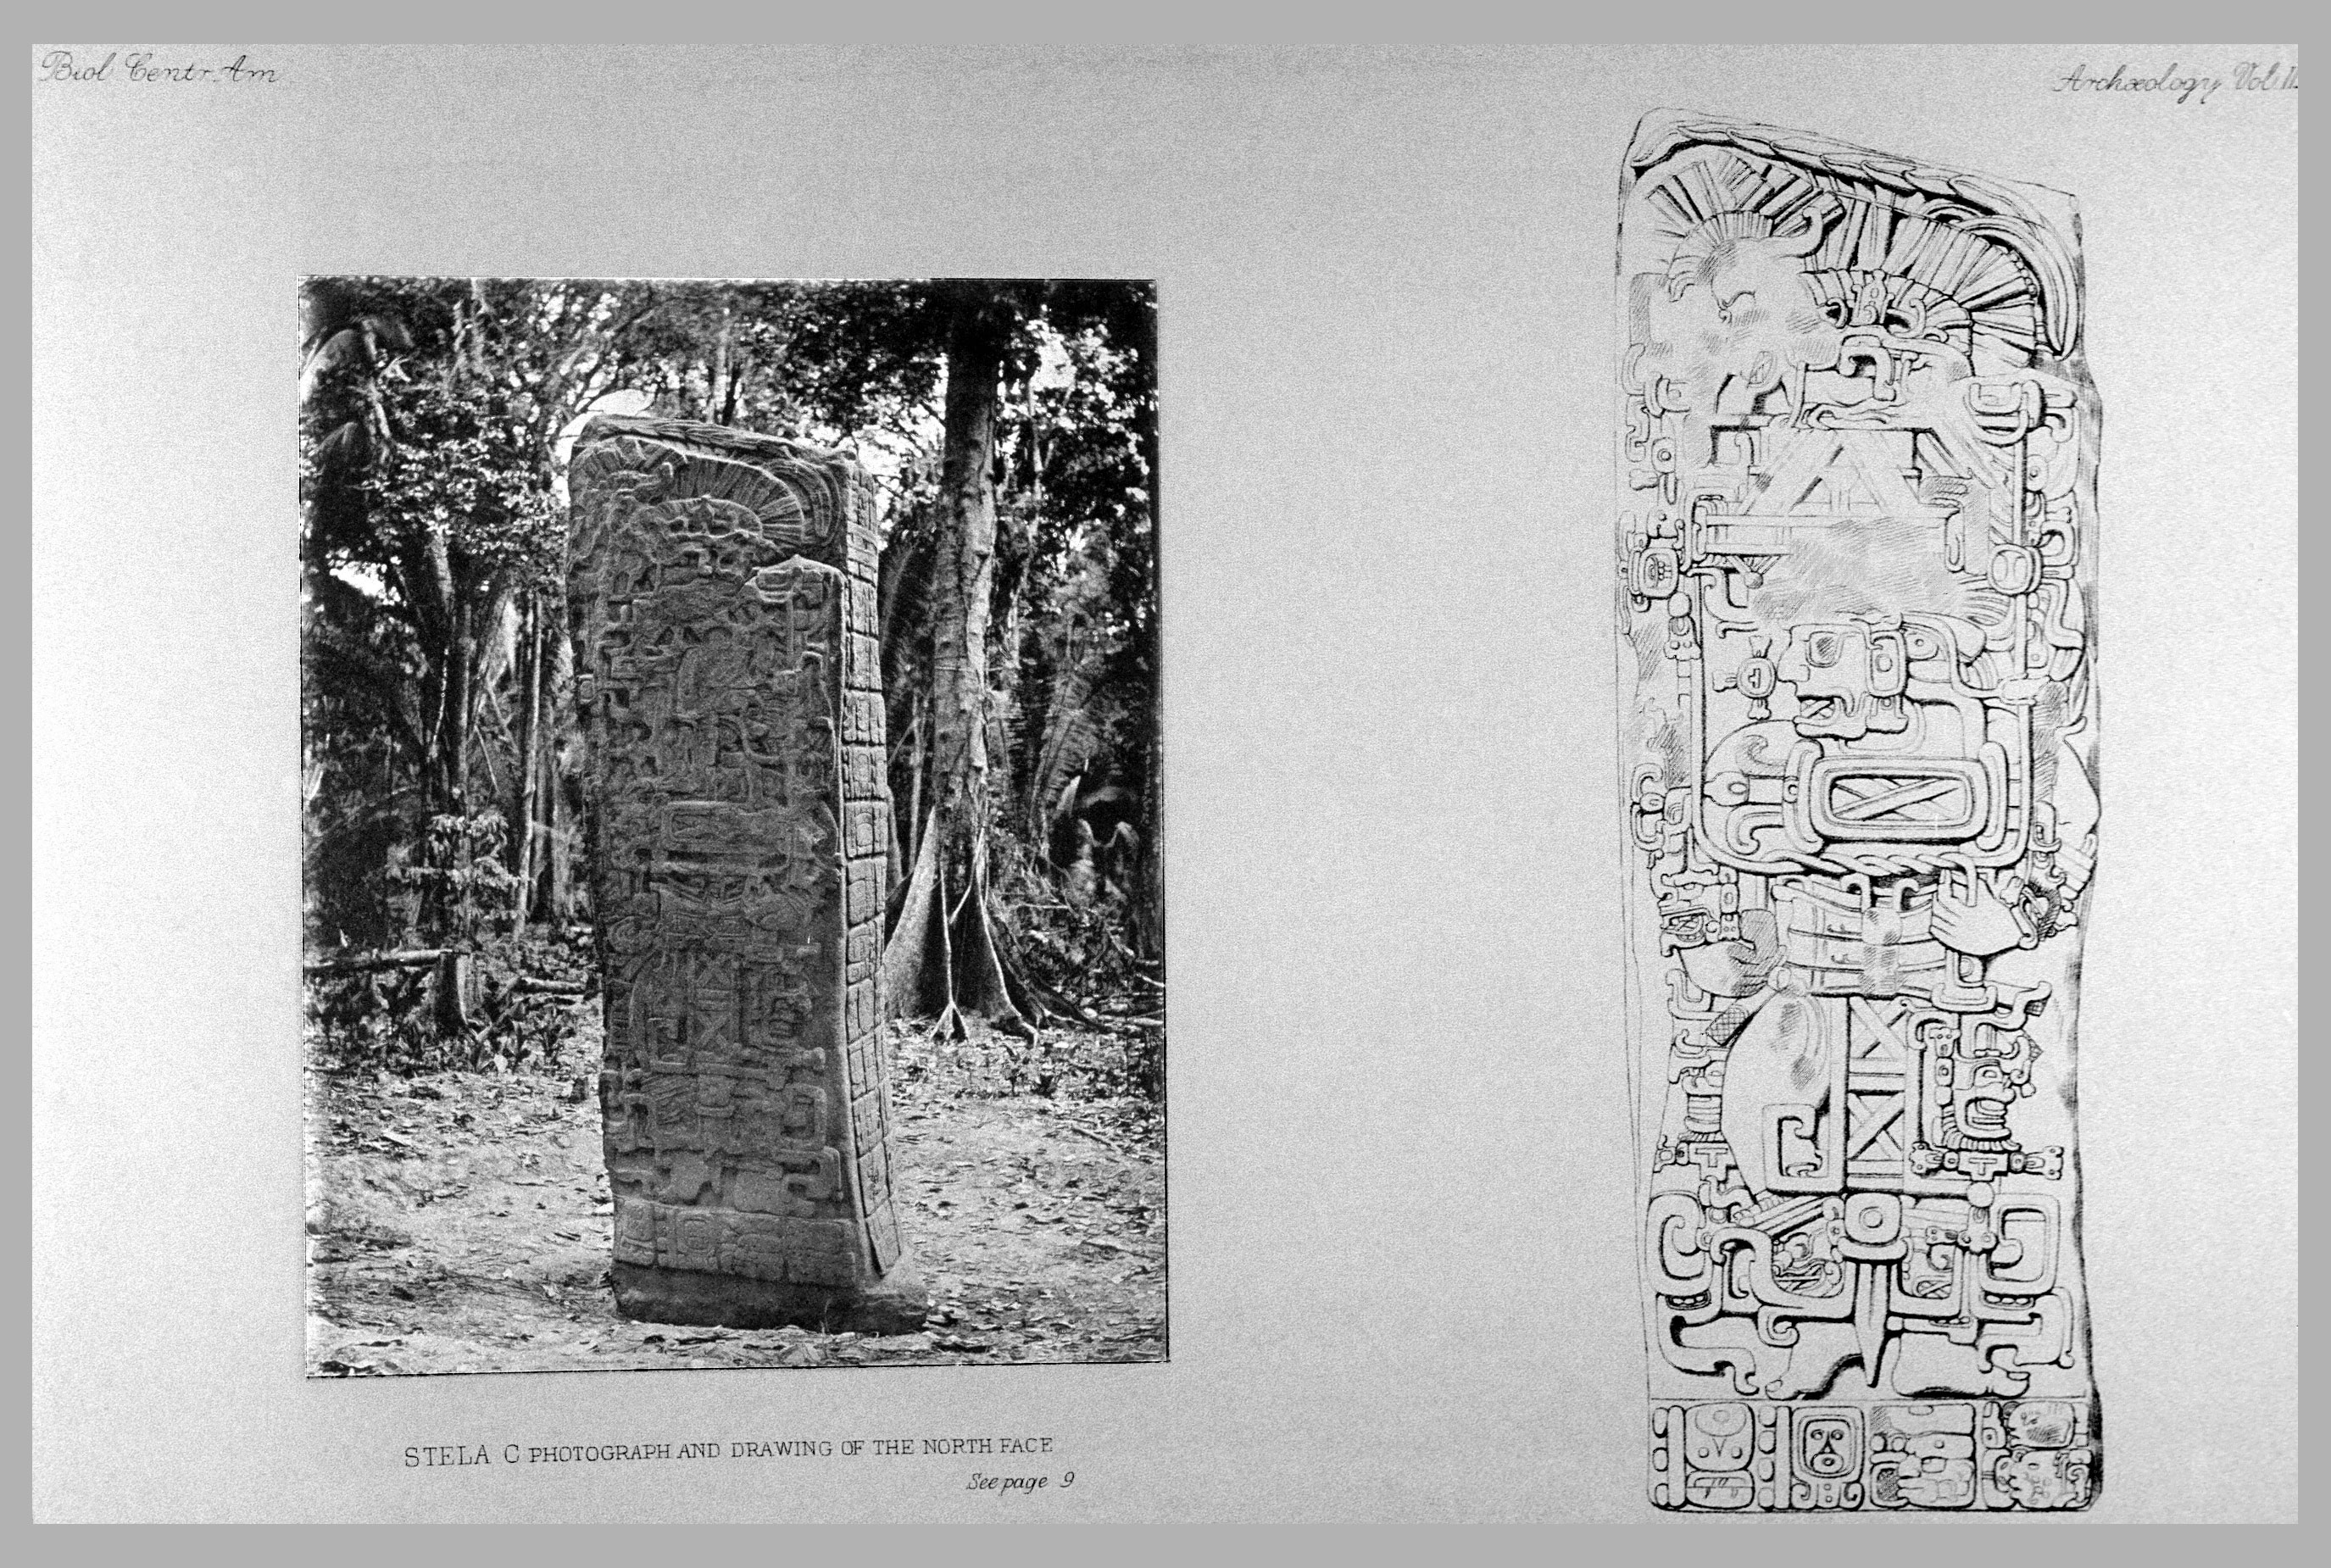 Biol. Centr. Am.
Archæology Vol. II.
STELA C PHOTOGRAPH AND DRAWING OF THE NORTH FACE
See page 9